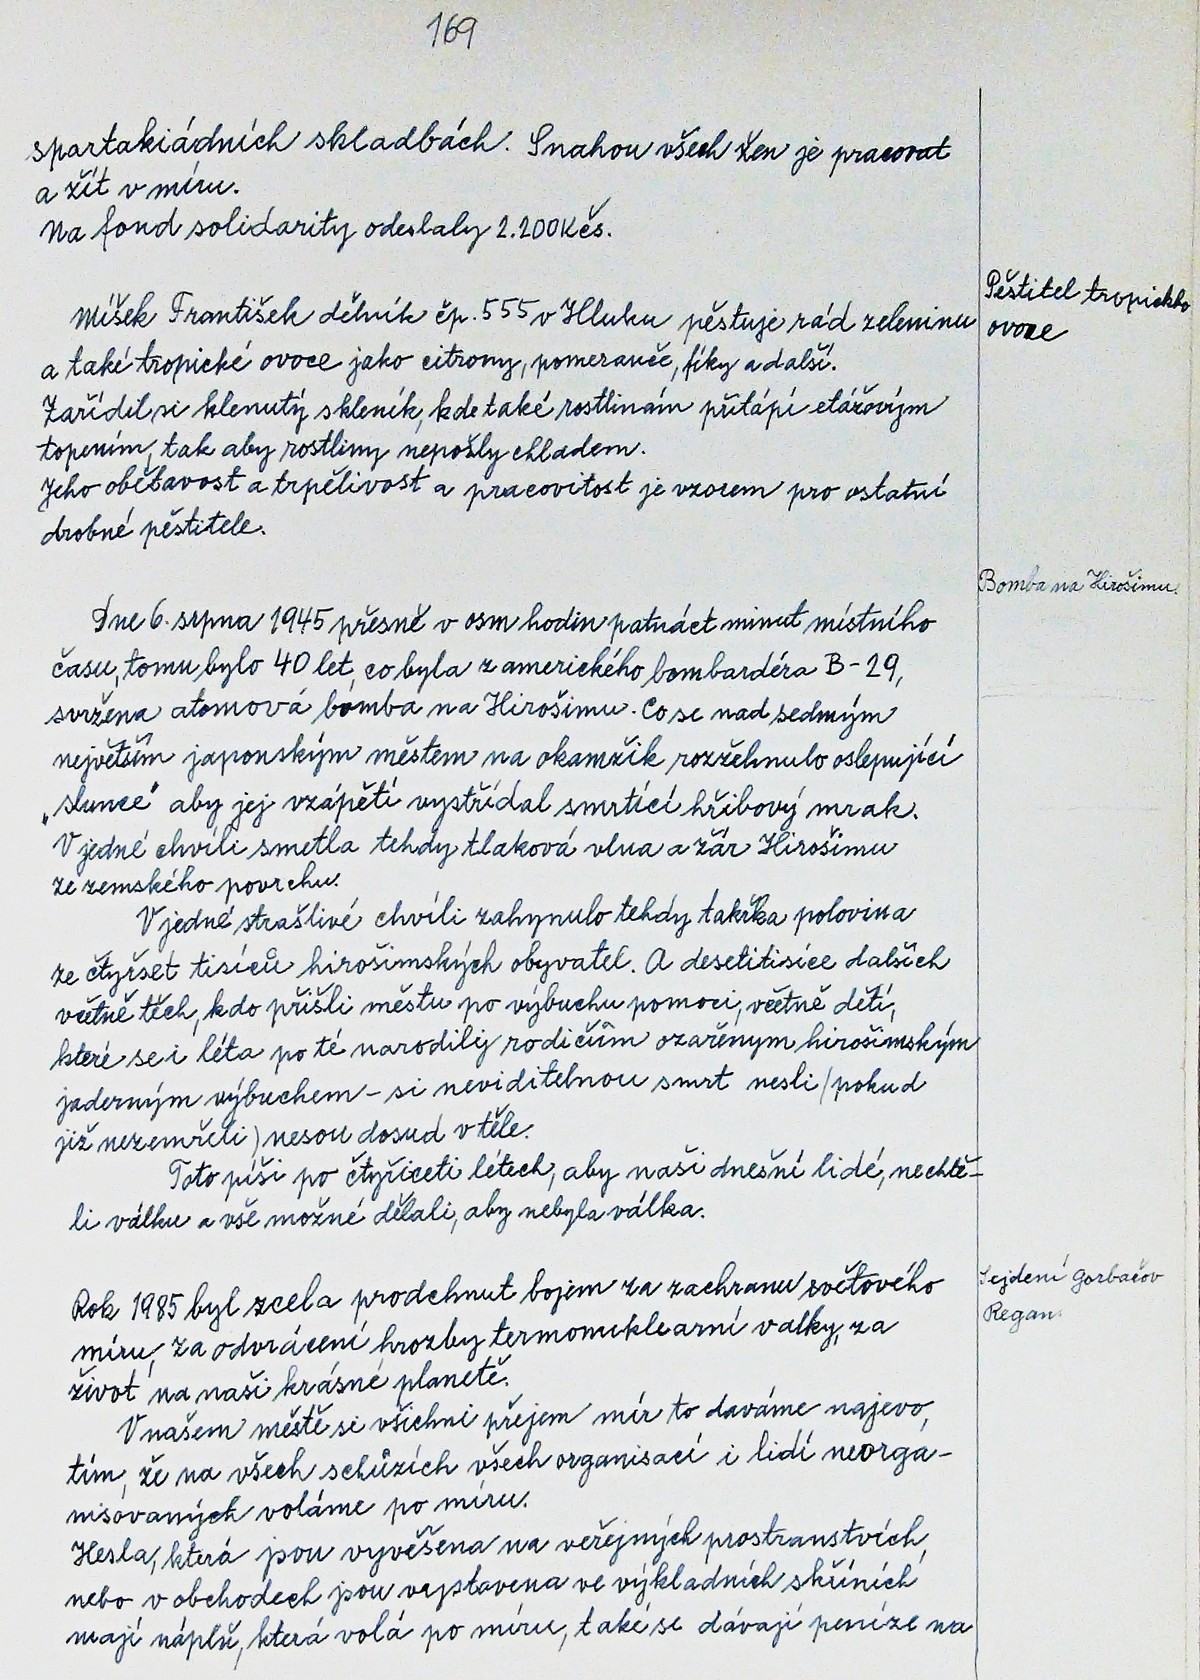 169
spartakiádních skladbách. Snahou všech žen je pracovat
a žít v míru.
Na fond solidarity odeslaly 2.200Kčs.
Pěstitel tropického
ovoce
Míšek František dělník čp. 555 v Hluku pěstuje rád zeleninu
a také tropické ovoce jako citrony, pomeranče, fíky a další.
Zařídil si klenutý skleník, kde také rostlinám přitápí etážovým
topením, tak aby rostliny nepošly chladem.
Jeho obětavost a trpělivost a pracovitost je vzorem pro ostatní
drobné pěstitele.
Bomba na Hirošimu.
Dne 6. srpna 1945 přesně v osm hodin patnáct minut místního
času, tomu bylo 40 let, co byla z amerického bombardéra B-29,
svržena atomová bomba na Hirošimu. Co se nad sedmým
největším japonským městem na okamžik rozžehnulo oslepující
„slunce" aby jej vzápětí vystřídal smrtící hřibový mrak.
V jedné chvíli smetla tehdy tlaková vlna a žár Hirošimu
ze zemského povrchu.
V jedné strašlivé chvíli zahynulo tehdy takřka polovina
ze čtyřset tisíců hirošimských obyvatel. A desetitisíce dalších
včetně těch, kdo přišli městu po výbuchu pomoci, včetně dětí,
které se i léta po té narodily rodičům ozařeným hirošimským
jaderným výbuchem - si neviditelnou smrt nesli (pokud
již nezemřeli) nesou dosud v těle.
Toto píši po čtyřiceti létech, aby naši dnešní lidé, nechtě-
li válku a vše možné dělali, aby nebyla válka.
Sejdení Gorbačov
Regan.
Rok 1985 byl zcela prodchnut bojem za zachranu světového
míru, za odvrácení hrozby termonuklearní valky, za
život na naši krásné planetě.
V našem městě si všichni přejem mír to daváme najevo,
tím, že na všech schůzích všech organisací i lidí neorga-
nisovaných voláme po míru.
Hesla, která jsou vyvěšena na veřejných prostranstvích,
nebo v obchodech jsou vystavena ve výkladních skříních
mají náplň, která volá po míru, také se dávají peníze na